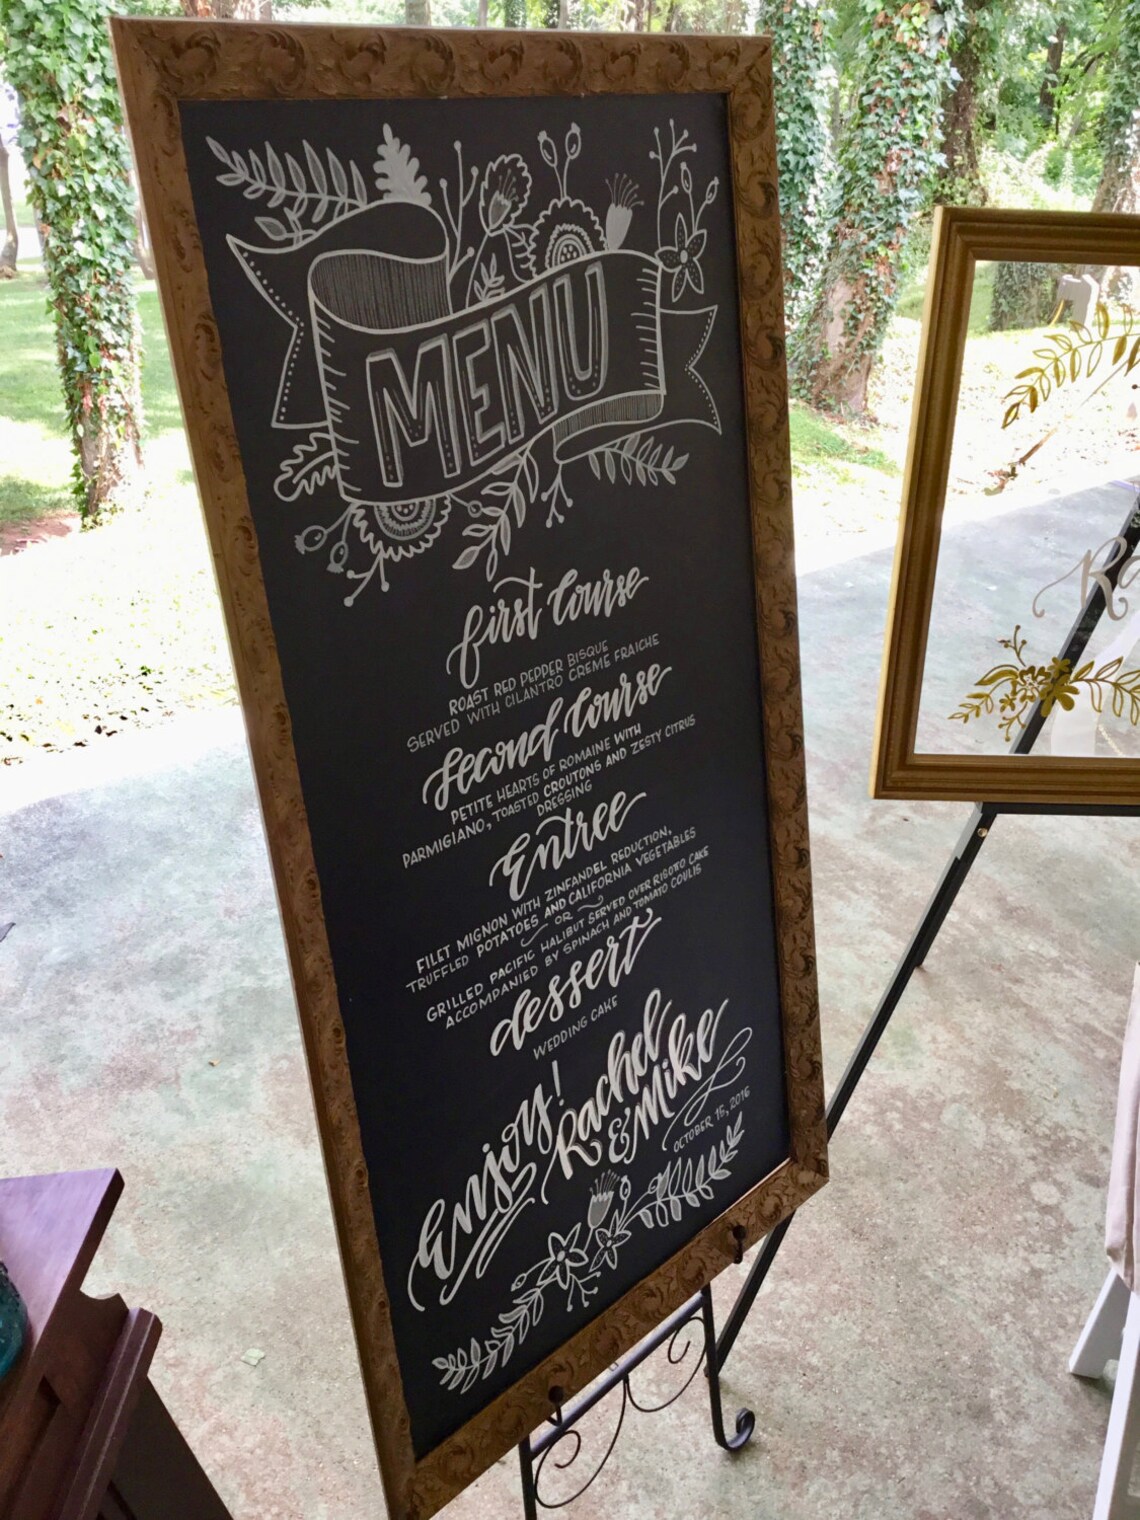 MENU
first Course
ROAST RED PEPPER BISQUE
SERVED WITH CILANTRO CREME FRAICHE
second Course
PETITE HEARTS OF ROMAINE WITH
PARMIGIANO, TOASTED CROUTONS AND ZESTY CITRUS
DRESSING
Entree
FILET MIGNON WITH ZINFANDEL REDUCTION,
TRUFFLED POTATOES AND CALIFORNIA VEGETABLES
OR
GRILLED PACIFIC HALIBUT SERVED OVER RISOTTO CAKE
ACCOMPANIED BY SPINACH AND TOMATO COULIS
dessert
WEDDING CAKE
Enjoy!
Rachel
& Mike
OCTOBER 15, 2016